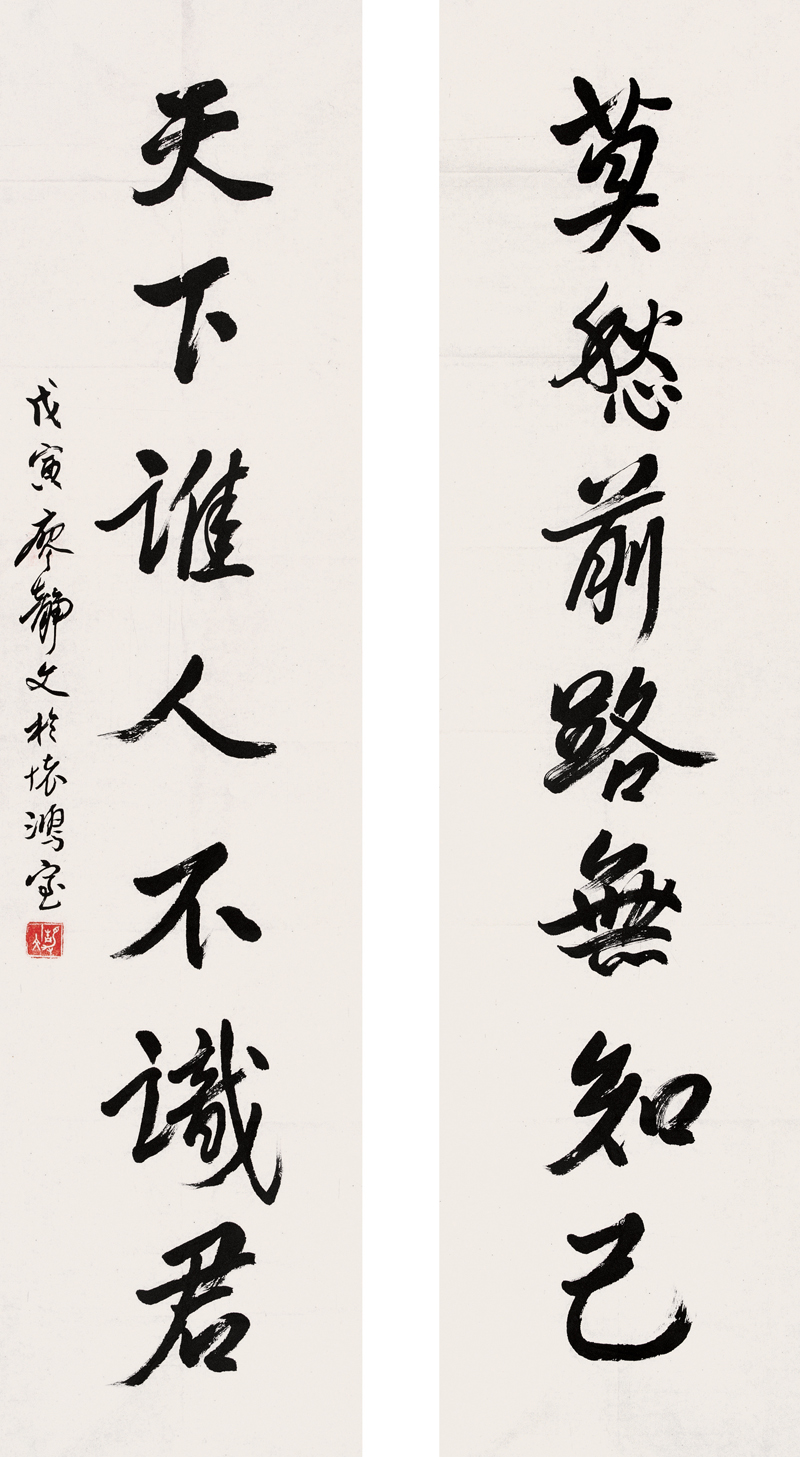 莫愁前路無知己
天下誰人不識君
戊寅廖静文於懷鴻室